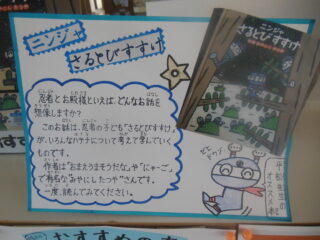 ニンジャ
さるとびすすけ
ニンジャ
さるとびすすけ
忍者とお殿様といえば、どんなお話を
想像しますか？
このお話は、忍者の子ども“さるとびすすけ”
が、いろんなハテナについて考えて学んでいく
ものです。
作者は“おまえうまそうだな”や“にゃーご”
で有名な“みやにしたつや”さんです。
一度、読んでみてください。
オススメ本